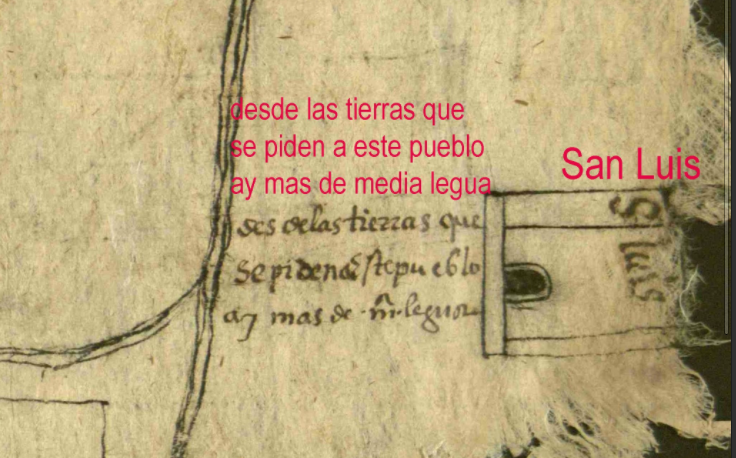 desde las tierras que
se piden a este pueblo
ay mas de media legua
San Luis
des de las tierras que
se piden a este pueblo
ay mas de .mª. legua
S luis